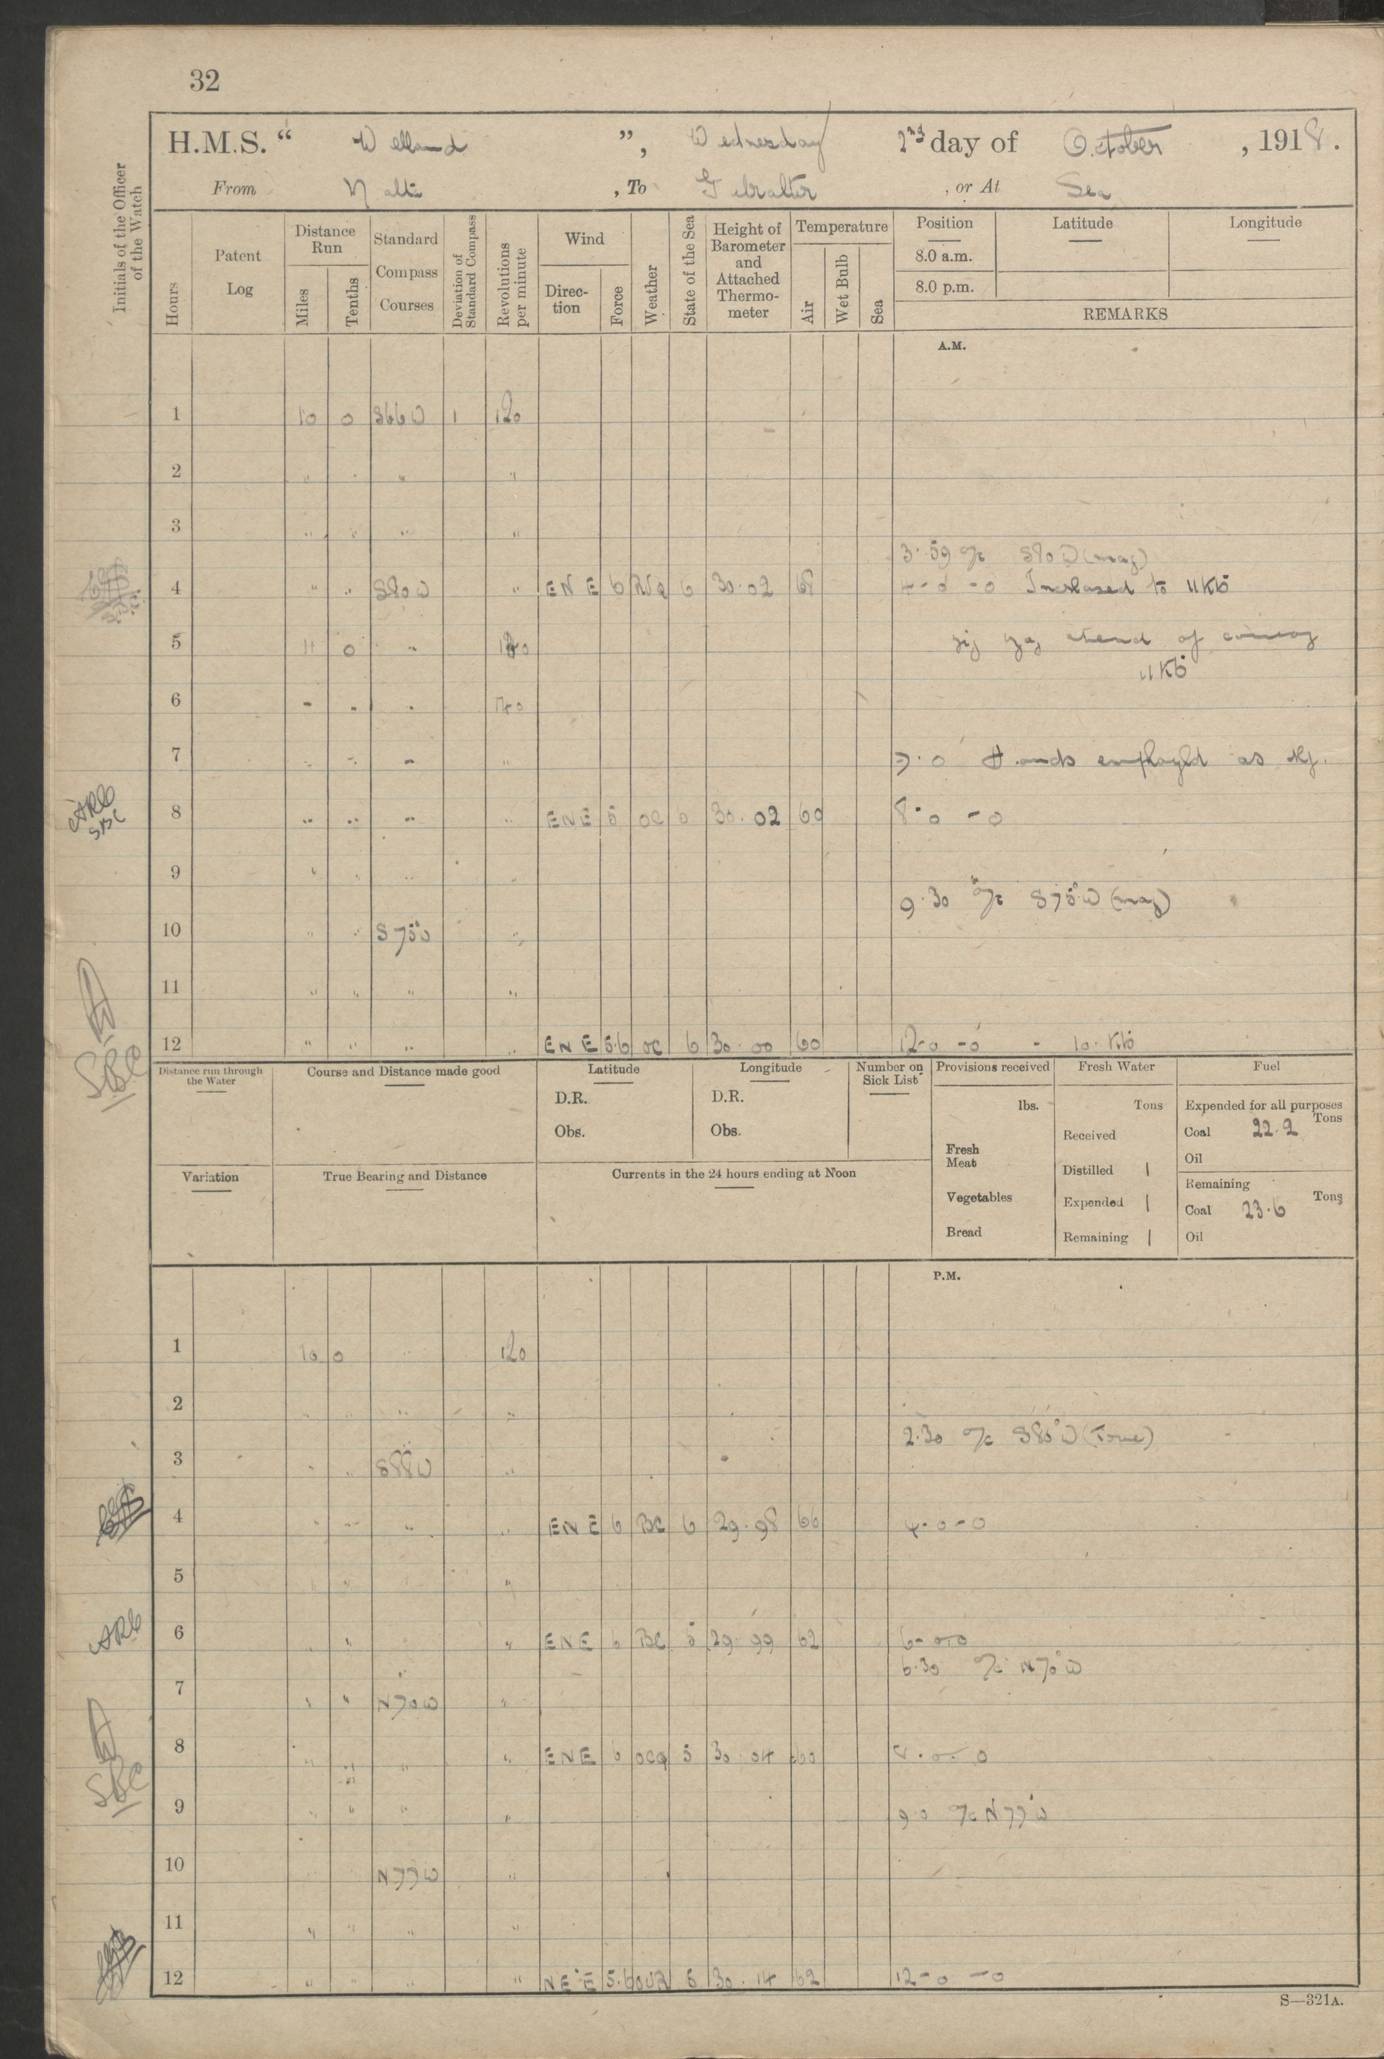 32
H.M.S. “ Welland ”, Wednesday 2nd day of October , 1918.
From Malta , To Gibraltar , or At Sea
Initials of the Officer of the Watch
Hours
Patent Log
Distance Run
Miles
Tenths
Standard Compass Courses
Deviation of Standard Compass
Revolutions per minute
Wind
Direction
Force
Weather
State of the Sea
Height of Barometer and Attached Thermometer
Temperature
Air
Wet Bulb
Sea
Position Latitude Longitude
8.0 a.m.
8.0 p.m.
REMARKS
A.M.
1 10 0 S66W 1 120
2 " " " "
3 " " " "
3.59 a/c S80W (mag)
4 " " S80W " ENE 6 30.02 4-0-0 Increased to 11Kts
5 11 0 " zig zag ahead of convoy
11Kts
6 " " " 140
7 " " " " 7.0 Hands employed as
ARB
8 " " " " ENE 5 OC 30.02 60 8-0-0
SBC
9 " " " "
9.30 a/c S75°W (mag)
10 " " S75W "
11 " " " "
12 " " " " ENE 5.6 OC 6 30.00 60 12-0-0 - 10 Kts
SBC
Distance run through the Water
Course and Distance made good
Latitude
D.R.
Obs.
Longitude
D.R.
Obs.
Number on Sick List
Provisions received
lbs.
Fresh Meat
Vegetables
Bread
Fresh Water
Tons
Received
Distilled
Expended
Remaining
Fuel
Expended for all purposes
Tons
Coal 22.2
Oil
Remaining
Tons
Coal 23.6
Oil
Variation
True Bearing and Distance
Currents in the 24 hours ending at Noon
P.M.
1 10 0 120
2 " " " "
2.30 a/c S80°W (True)
3 " " S88W "
4 " " " " ENE 6 BC 6 29.98 60 4-0-0
5 " "
6 " " ENE 6 BC 5 29.99 62 6-0-0
ARB
6.30 a/c N70°W
7 " " N70W "
8 " " " " ENE 6 OCQ 5 30.04 60 8-0-0
SBC
9 " " " " 9.0 a/c N77°W
10 N77W "
11 " " " "
12 " " " " NE'E 5.6 30.14 62 12-0-0
S—321A.